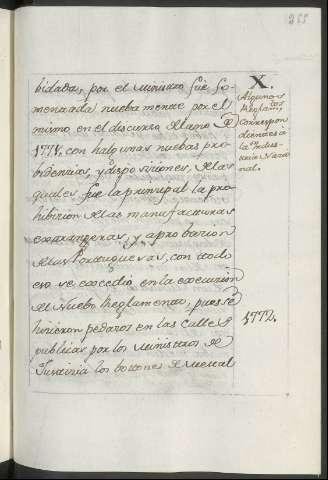 255
bidada, por el Ministro fué fo-
mentada nuebamente por el
mismo en el discurso del año de
1771, con halgunas nuebas pro-
bidencias, y disposiciones, de las
quales fue la principal la pro-
hibicion de las manufacturas
extrangeras, y aprobacion
de las Portuguesas, con todo
eso se excedió en la execucion
del Nuebo Reglamento, pues se
hicieron pedazos en las calles
publicas por los Ministros de
Justicia los botones de Metal
X.
Algunos
Reglam.tos
correspon
dientes a
la Indus-
tria Nacio
nal.
1772.